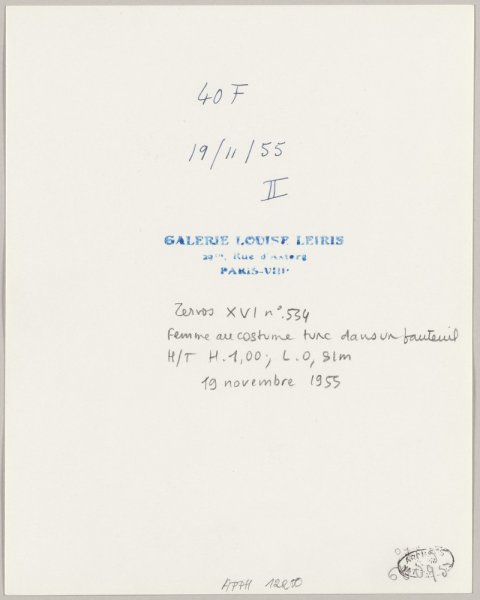 40 F
19/11/55
II
GALERIE LOUISE LEIRIS
29bis, Rue d'Astorg
PARIS-VIIIe
Zervos XVI n°.534
Femme au costume turc dans un fauteuil
H/T H.1,00; L.0,81m
19 novembre 1955
APPH